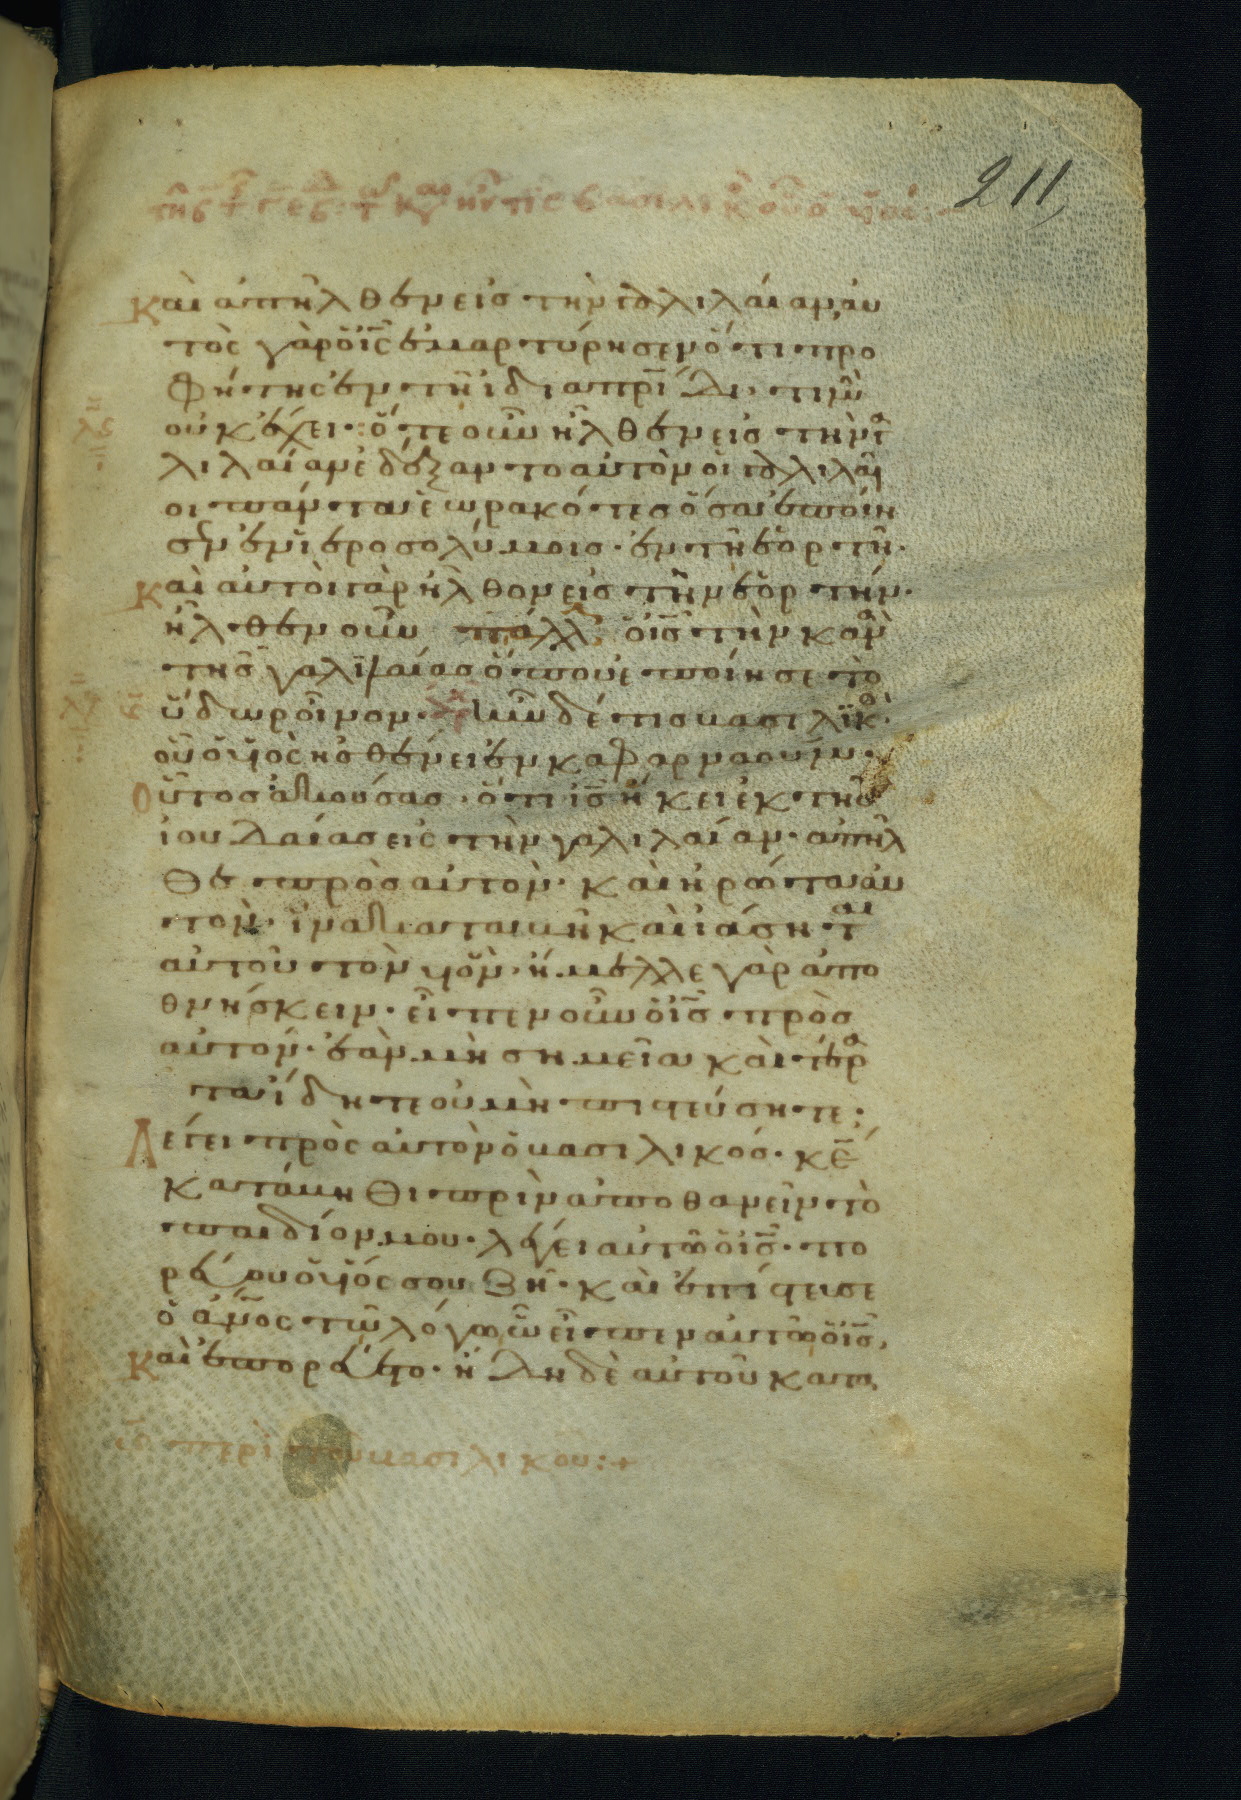 211
Καὶ ἀπῆλθεν εἰς τὴν γαλιλαίαν, αυ
τὸς γὰρ ὁ ἰς ἐμαρτύρησεν ὅτι προ
φήτης ἐν τῆ ἰδία πρίδι τιμὴν
οὐκ ἔχει· ὅτε οὖν ἦλθεν εἰς τὴν γα
λιλαίαν ἐδέξαντο αὐτὸν οἱ γαλιλαῖ
οι πάντα ἑωρακότες ὅσα ἐποίη
σεν ἐν ἱεροσολύμοις· ἐν τῆ ἑορτῆ·
Καὶ αὐτοὶ γὰρ ἦλθον εἰς τὴν ἑορτήν·
ἦλθεν οὖν πάλιν ὁ ἰς εἰς τὴν κανὰ
τῆς γαλιλαίας ὅπου ἐποίησε τὸ
ὕδωρ οἶνον· ἦν δέ τις βασιλικὸς
οὗ ὁ υἱὸς ἠσθένει ἐν καφαρναούμ·
Οὗτος ἀκούσας· ὅτι ἰς ἥκει ἐκ τῆς
ἰουδαίας εἰς τὴν γαλιλαίαν· ἀπῆλ
θε πρὸς αὐτὸν· καὶ ἠρώτα αὐ
τὸν· ἵνα καταβῆ καὶ ἰάσηται
αὐτοῦ τὸν υἱὸν· ἤμελλε γὰρ ἀπο
θνήσκειν· εἶπεν οὖν ὁ ἰς πρὸς
αὐτόν· ἐὰν μὴ σημεῖα καὶ τέρα
τα ἴδητε οὐ μὴ πιστεύσητε;
Λέγει πρὸς αὐτὸν ὁ βασιλικός· κε
κατάβηθι πρὶν ἀποθανεῖν τὸ
παιδίον μου· λέγει αὐτῶ ὁ ἰς· πο
ρεύου ὁ υἱός σου ζῆ· καὶ ἐπίστευσε
ὁ ἀνος τῶ λόγω ὧ εἶπεν αὐτῶ ὁ ἰς,
Καὶ ἐπορεύετο· ἤδη δὲ αὐτοῦ κατα
περὶ τοῦ βασιλικοῦ:+